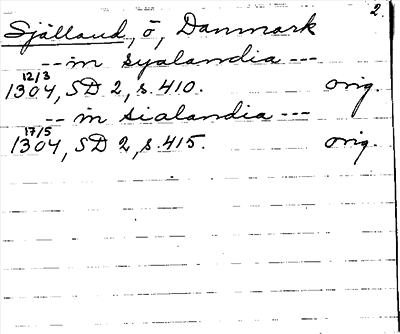 2.
Sjålland, ö, Danmark
-- in syalandia ---
12/3
1304, SD 2, s. 410. orig.
-- in sialandia ---
17/5
1304, SD 2, s. 415. orig.